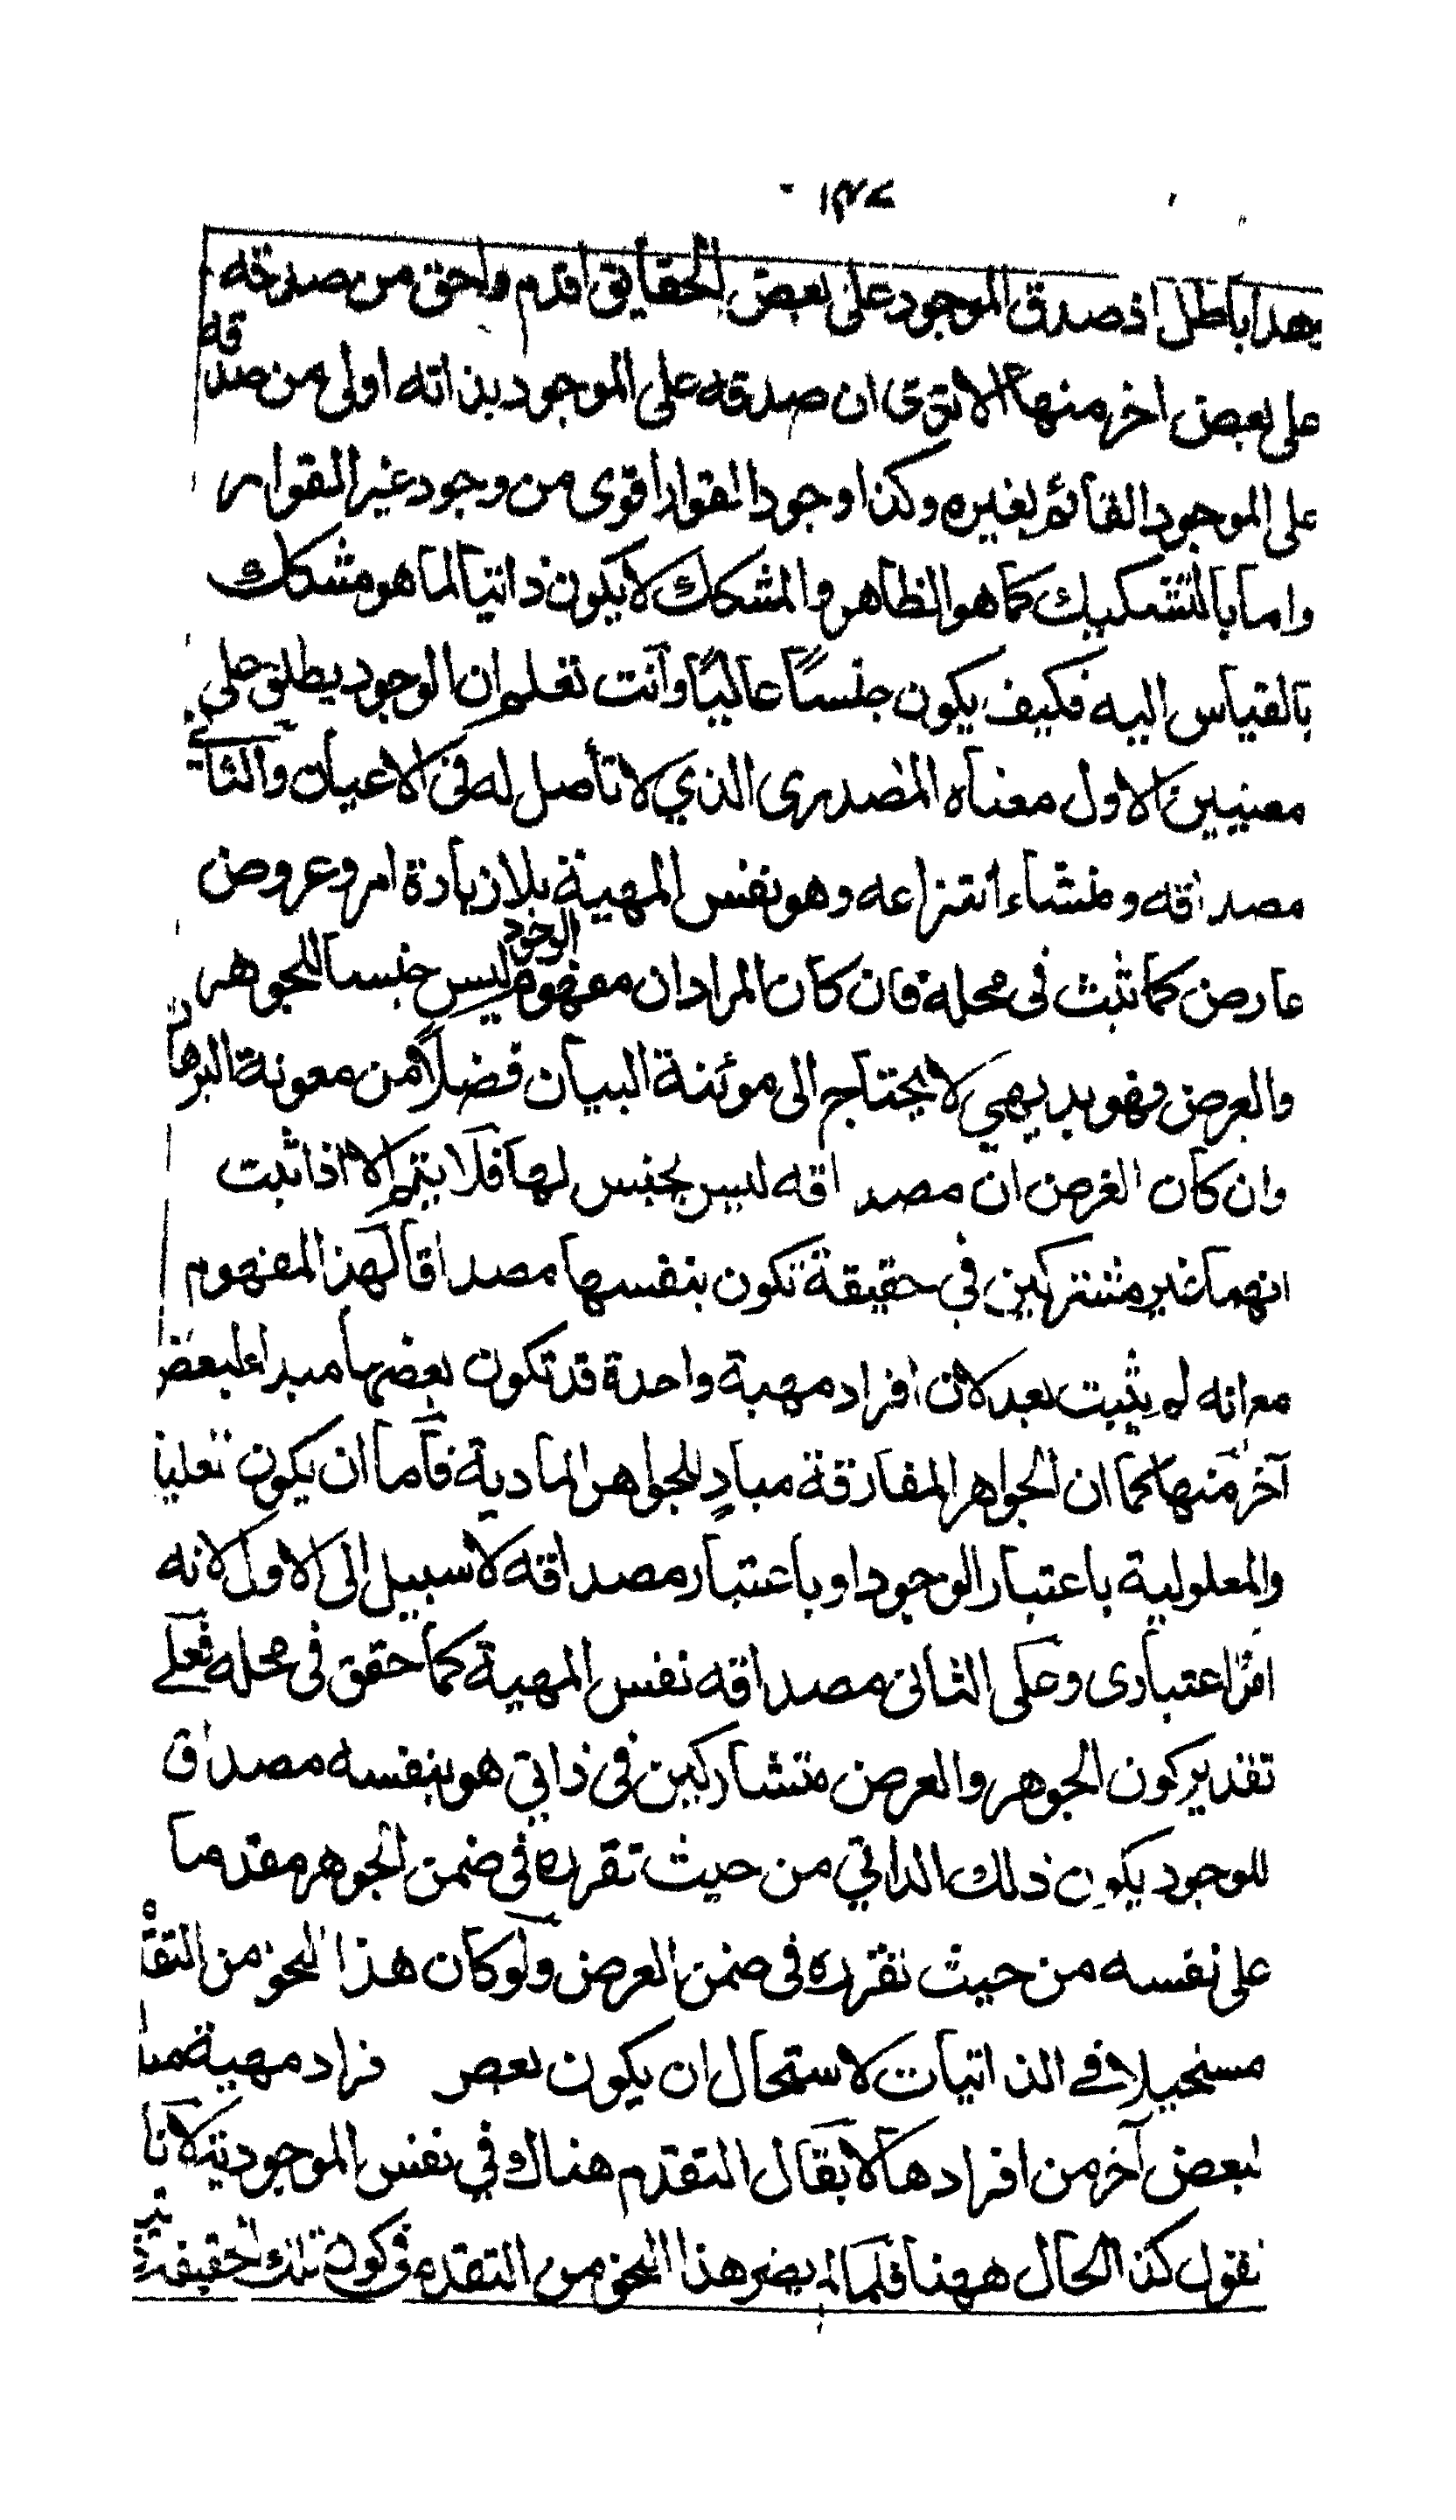 ١٣٧
بهذا باطل اذ صدق الموجود على بعض الحقايق اقدم واحق من صدقه
على بعض اخر منها الا ترى ان صدقه على الموجود بذاته اولى من صدقه
على الموجود القائم بغيره وكذا وجود القوار اقوى من وجود غير القوار
واما بالتشكيك كما هو الظاهر والمشكك لا يكون ذاتيا لما هو مشكك
بالقياس اليه فكيف يكون جنسًا عاليًا وانت تعلم ان الوجود يطلق على
معنيين الاول معناه المصدرى الذي لا تأصل له فى الاعيان والثاني
مصداقه ومنشاء انتزاعه وهو نفس المهية بلا زيادة امر وعروض
عارض كما ثبت فى محله فان كان المراد ان مفهوم الوجود ليس جنسا للجوهر
والعرض فهو بديهي لا يحتاج الى موئنة البيان فضلًا من معونة البرهان
وان كان الغرض ان مصداقه ليس بجنس لها فلا يتم الا اذا ثبت
انهما غير مشتركين في حقيقة تكون بنفسها مصداقا لهذا المفهوم
مع انه لم يثبت بعد لان افراد مهية واحدة قد تكون بعضها مبدا لبعض
آخر منها كما ان الجواهر المفارقة مبادٍ للجواهر المادية فاما ان يكون
والمعلولية باعتبار الوجود او باعتبار مصداقه لا سبيل الى الاول لانه
امر اعتبارى وعلى الثانى مصداقه نفس المهية كما حقق فى محله فعلى
تقدير كون الجوهر والعرض متشاركين فى ذاتي هو بنفسه مصداق
للوجود يكون ذلك الذاتي من حيث تقرره فى ضمن الجوهر مقدما
على نفسه من حيث تقرره فى ضمن العرض ولو كان هذا النحو من التقدم
مستحيلا فے الذاتيات لاستحال ان يكون بعض فراد مهية مبدا
لبعض آخر من افرادها لا يقال التقدم هناك في نفس الموجودية لانا
نقول كذا الحال ههنا فكما لم يضر هذا النحو من التقدم فى كون تلك الحقيقة